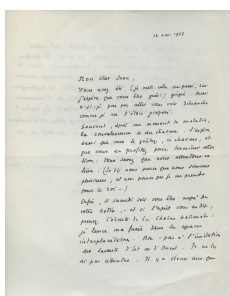 12 nov. 1957
Mon cher Jean,
Vous avez été (je mets cela au passé, car
j'espère que vous êtes guéri) grippé. Aussi
n'ai-je pas pu aller vous voir dimanche
comme je me l'étais proposé.
Souvent, après un moment de maladie,
la convalescence a du charme. J'espère
ainsi que vous le goûtez, ce charme, et
que vous en profitez pour terminer votre
livre. Vous savez que nous attendons ce
livre. (Je dis nous parce que nous sommes
plusieurs, et non parce que je me prends
pour le roi...)
Enfin, si samedi soir vous êtes auprès de
votre radio, et si d'après vous
prenez l'écoute de la Chaîne Nationale :
je lance ma fusée dans les espaces
interplanétaires. Non pas à l'imitation
des savants d'Est ou d'Ouest. Je ne les
ai pas attendus. Il y a deux ans que